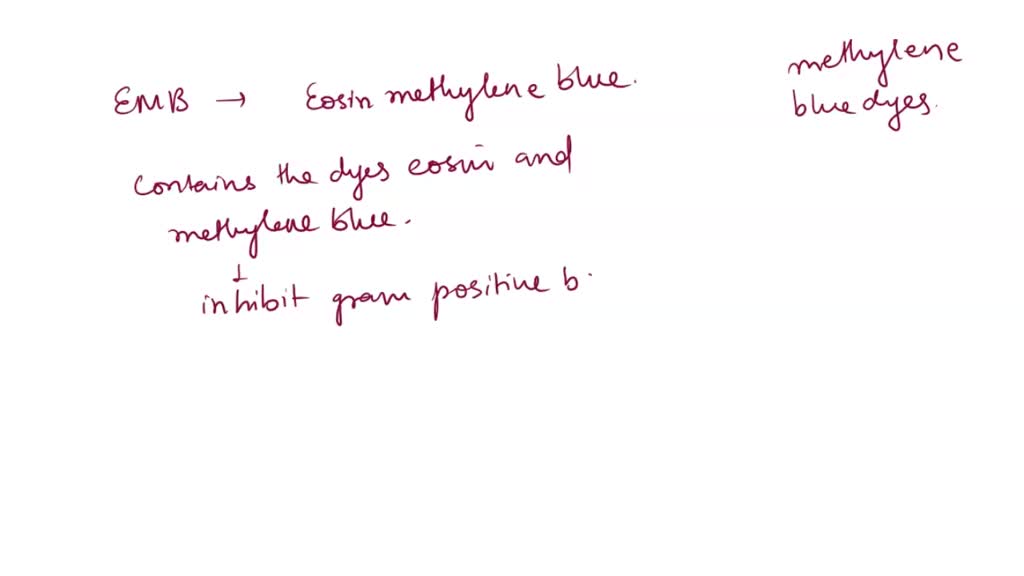 EMB → Eosin methylene blue.
contains the dyes eosin and
methylene blue.
↓
inhibit gram positive b.
methylene
blue dyes.